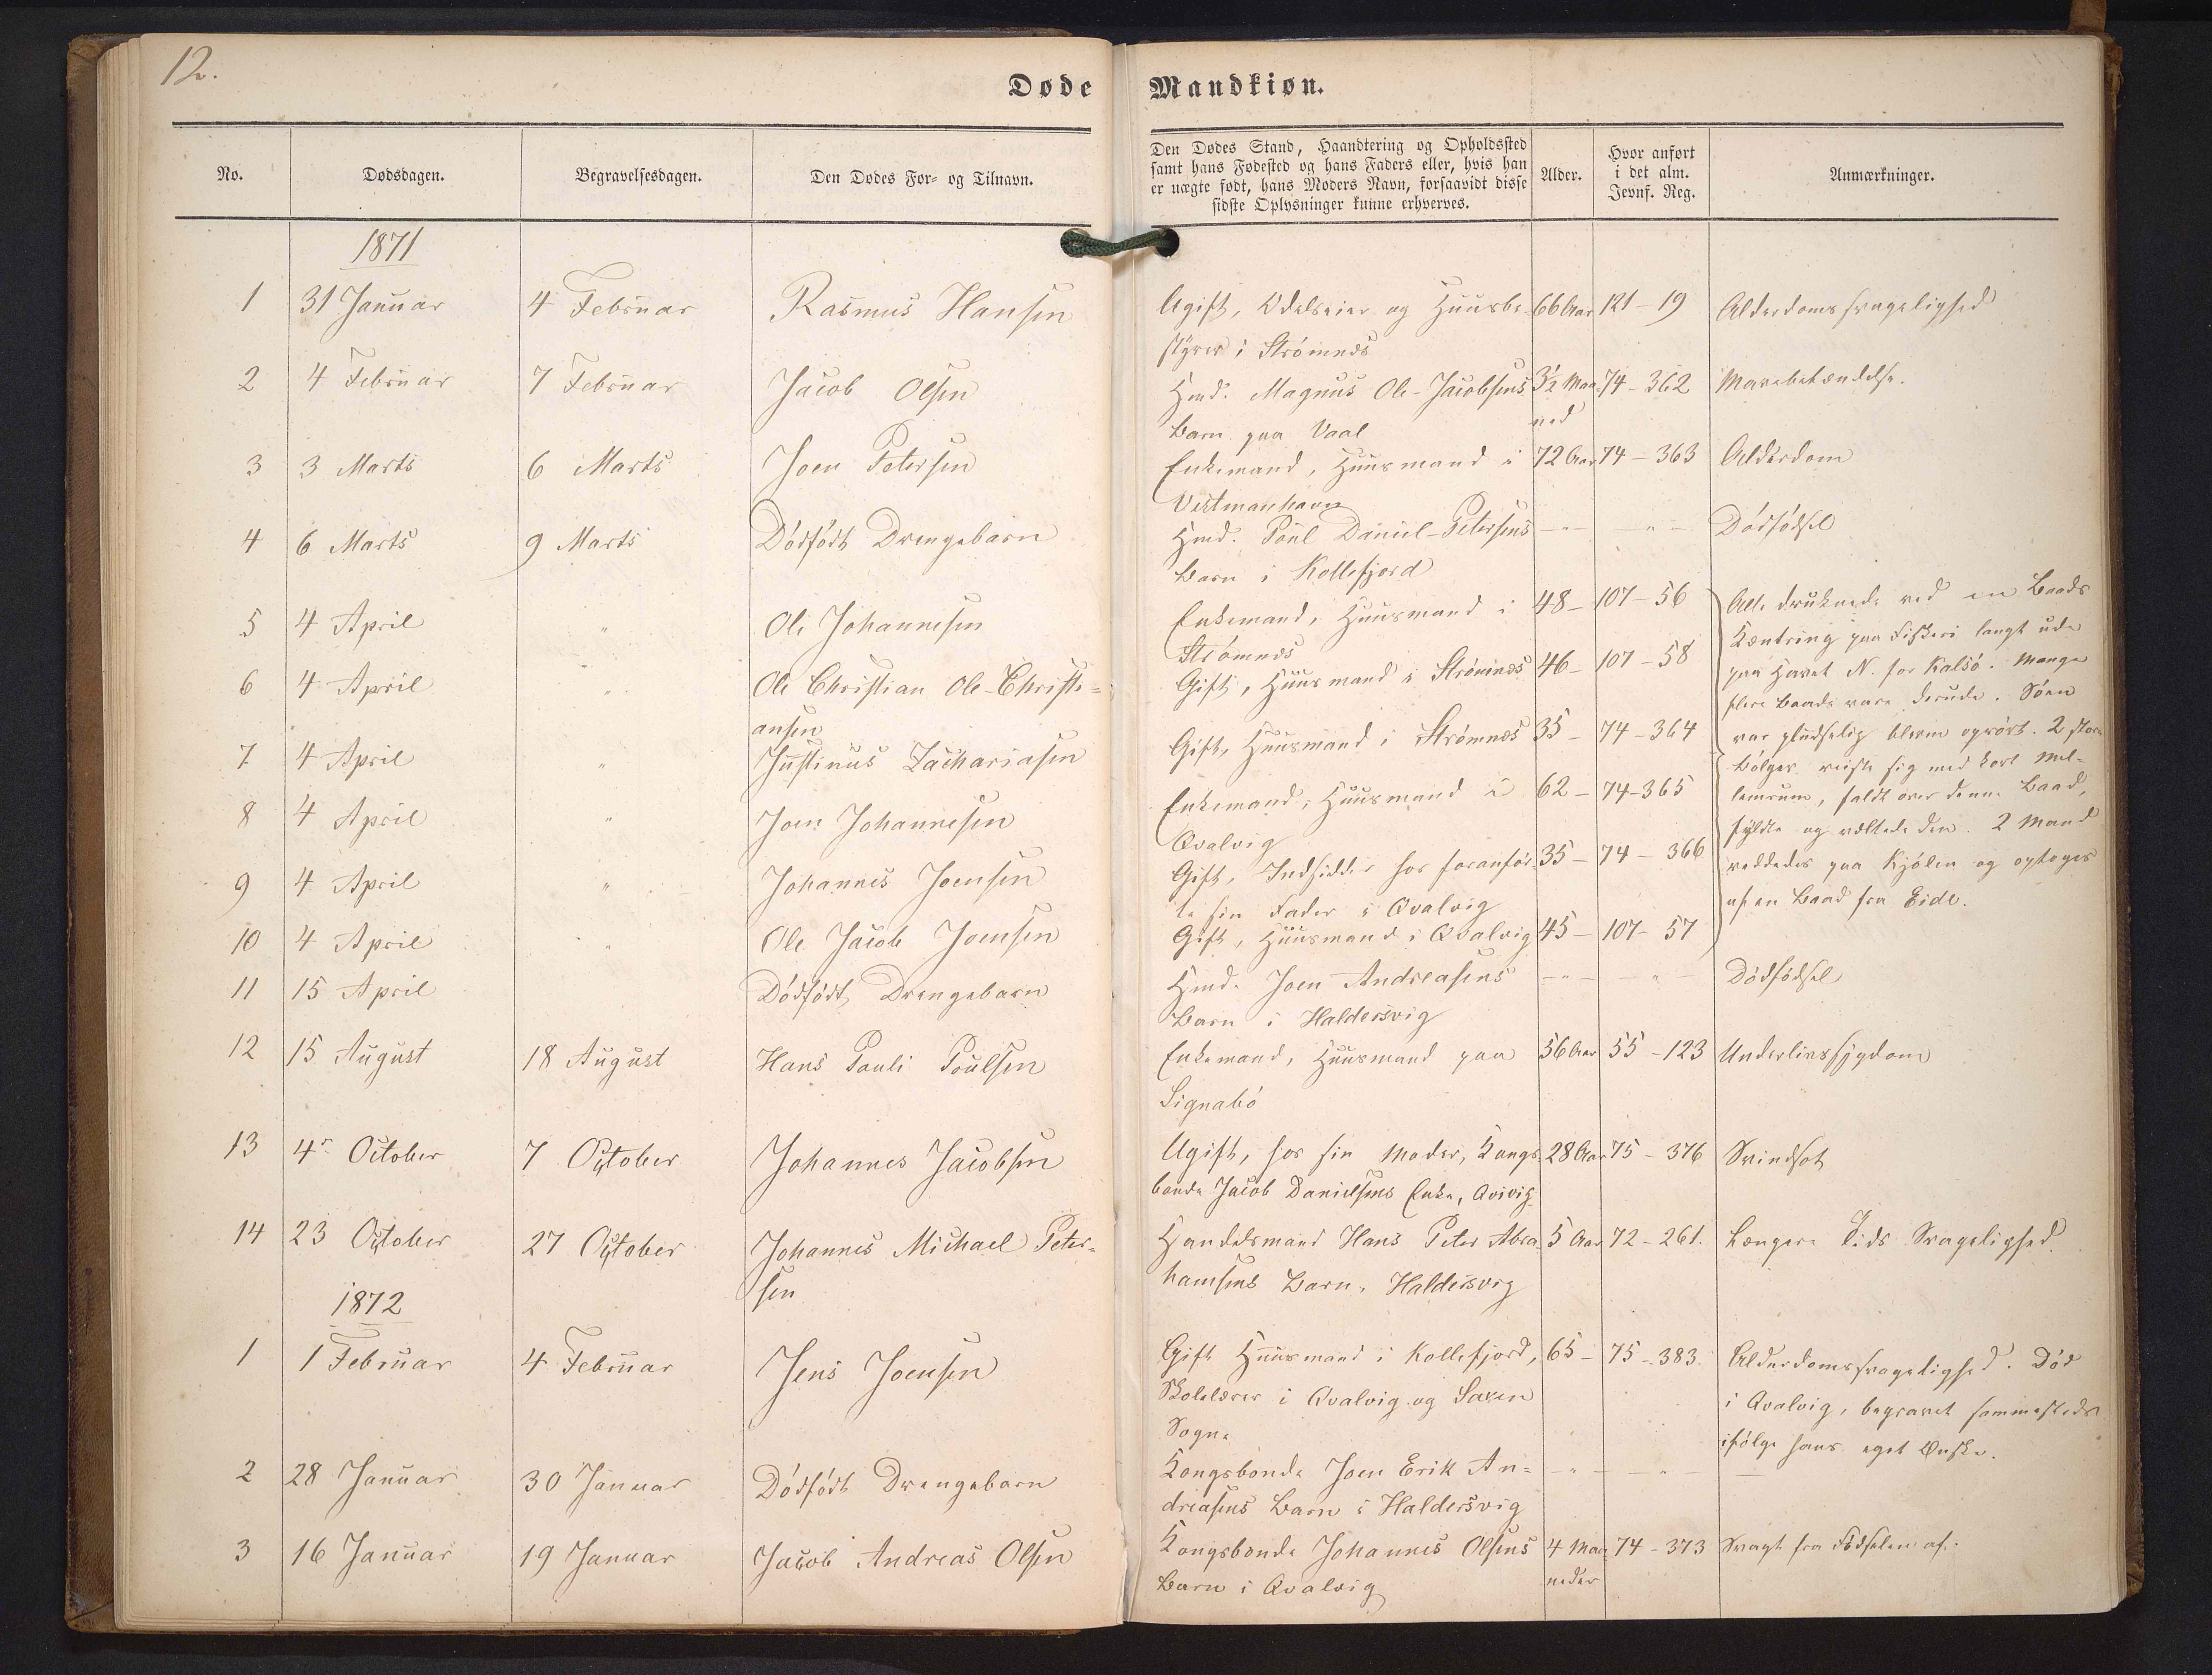 12.
Døde Mandkiøn.
No. Dødsdagen. Begravelsesdagen. Den Dødes For- og Tilnavn.
Den Dødes Stand, Haandtering og Opholdssted
samt hans Fødested og hans Faders eller, hvis han
er uægte født, hans Moders Navn, forsaavidt disse
sidste Oplysninger kunne erhverves.
Alder.
Hvor anført
i det alm.
Jevnf. Reg.
Anmærkninger.
1871
1 31 Januar 4 Februar Rasmus Hansen Ugift, Odelseier og Huusbe- 66 Aar 121-19 Alderdomssvagelighed
styrer i Strømnæs
2 4 Februar 7 Februar Jacob Olsen Hmd. Magnus Ole-Jacobsens 3½ Maa- 74-362 Mavebetændelse.
Barn paa Vaal ned
3 3 Marts 6 Marts Joen Petersen Enkemand, Huusmand i 72 Aar 74-363 Alderdom
Vestmanhavn
4 6 Marts 9 Marts Dödfödt Drengebarn Hmd. Poul Daniel-Petersens -"- -"- Dödfödsel
Barn i Kollefjord
5 4 April " Ole Johannesen Enkemand, Huusmand i 48- 107-56
Strömnæs
6 4 April " Ole Christian Ole-Christi=
ansen
Gift, Huusmand i Strömnæs 46- 107-58
7 4 April " Justinus Zachariasen Gift, Huusmand i Strømnæs 35- 74-364
8 4 April " Joen Johannesen Enkemand, Huusmand i 62- 74-365
Qvalvig
9 4 April " Johannes Joensen Gift, Indsidder hos foranför- 35- 74-366
te sin Fader i Qvalvig
10 4 April " Ole Jacob Joensen Gift, Huusmand i Qvalvig 45- 107-57
Alle druknede ved en Baads
Kæntring paa Fiskeri langt ude
paa Havet N. for Kalsö. Mange
flere Baade vare derude. Söen
var pludselig bleven oprört. 2 store
Bölger reiste sig med kort Mel-
lemrum, faldt over denne Baad,
fyldte og væltede den. 2 Mand
reddedes paa Kjölen og optoges
af en Baad fra Eide.
11 15 April Dödfödt Drengebarn Hmd. Joen Andreasens -"- -"- Dödfödsel
Barn i Haldersvig
12 15 August 18 August Hans Pauli Poulsen Enkemand, Huusmand paa 56 Aar 55-123 Underlivssygdom
Signabö
13 4de October 7 October Johannes Jacobsen Ugift, hos sin Moder, Kongs- 28 Aar 75-376 Svindsot
bonde Jacob Danielsens Enke, Qvivig
14 23 October 27 October Johannes Michael Peter-
sen
Handelsmand Hans Peter Abra- 5 Aar 72-261. Længere Tids Svagelighed.
hamsens Barn, Haldersvig
1872
1 1 Februar 4 Februar Jens Joensen Gift Huusmand i Kollefjord, 65- 75-383. Alderdomssvagelighed. Död
Skolelærer i Qvalvig og Saxen i Qvalvig, begravet sammesteds
Sogne ifölge hans eget Önske.
2 28 Januar 30 Januar Dödfödt Drengebarn Kongsbonde Joen Erik An= -"- -"- -
dreasens Barn i Haldersvig
3 16 Januar 19 Januar Jacob Andreas Olsen Kongsbonde Johannes Olsens 4 Maa- 74-373 Svagt fra Födselen af.
Barn i Qvalvig neder